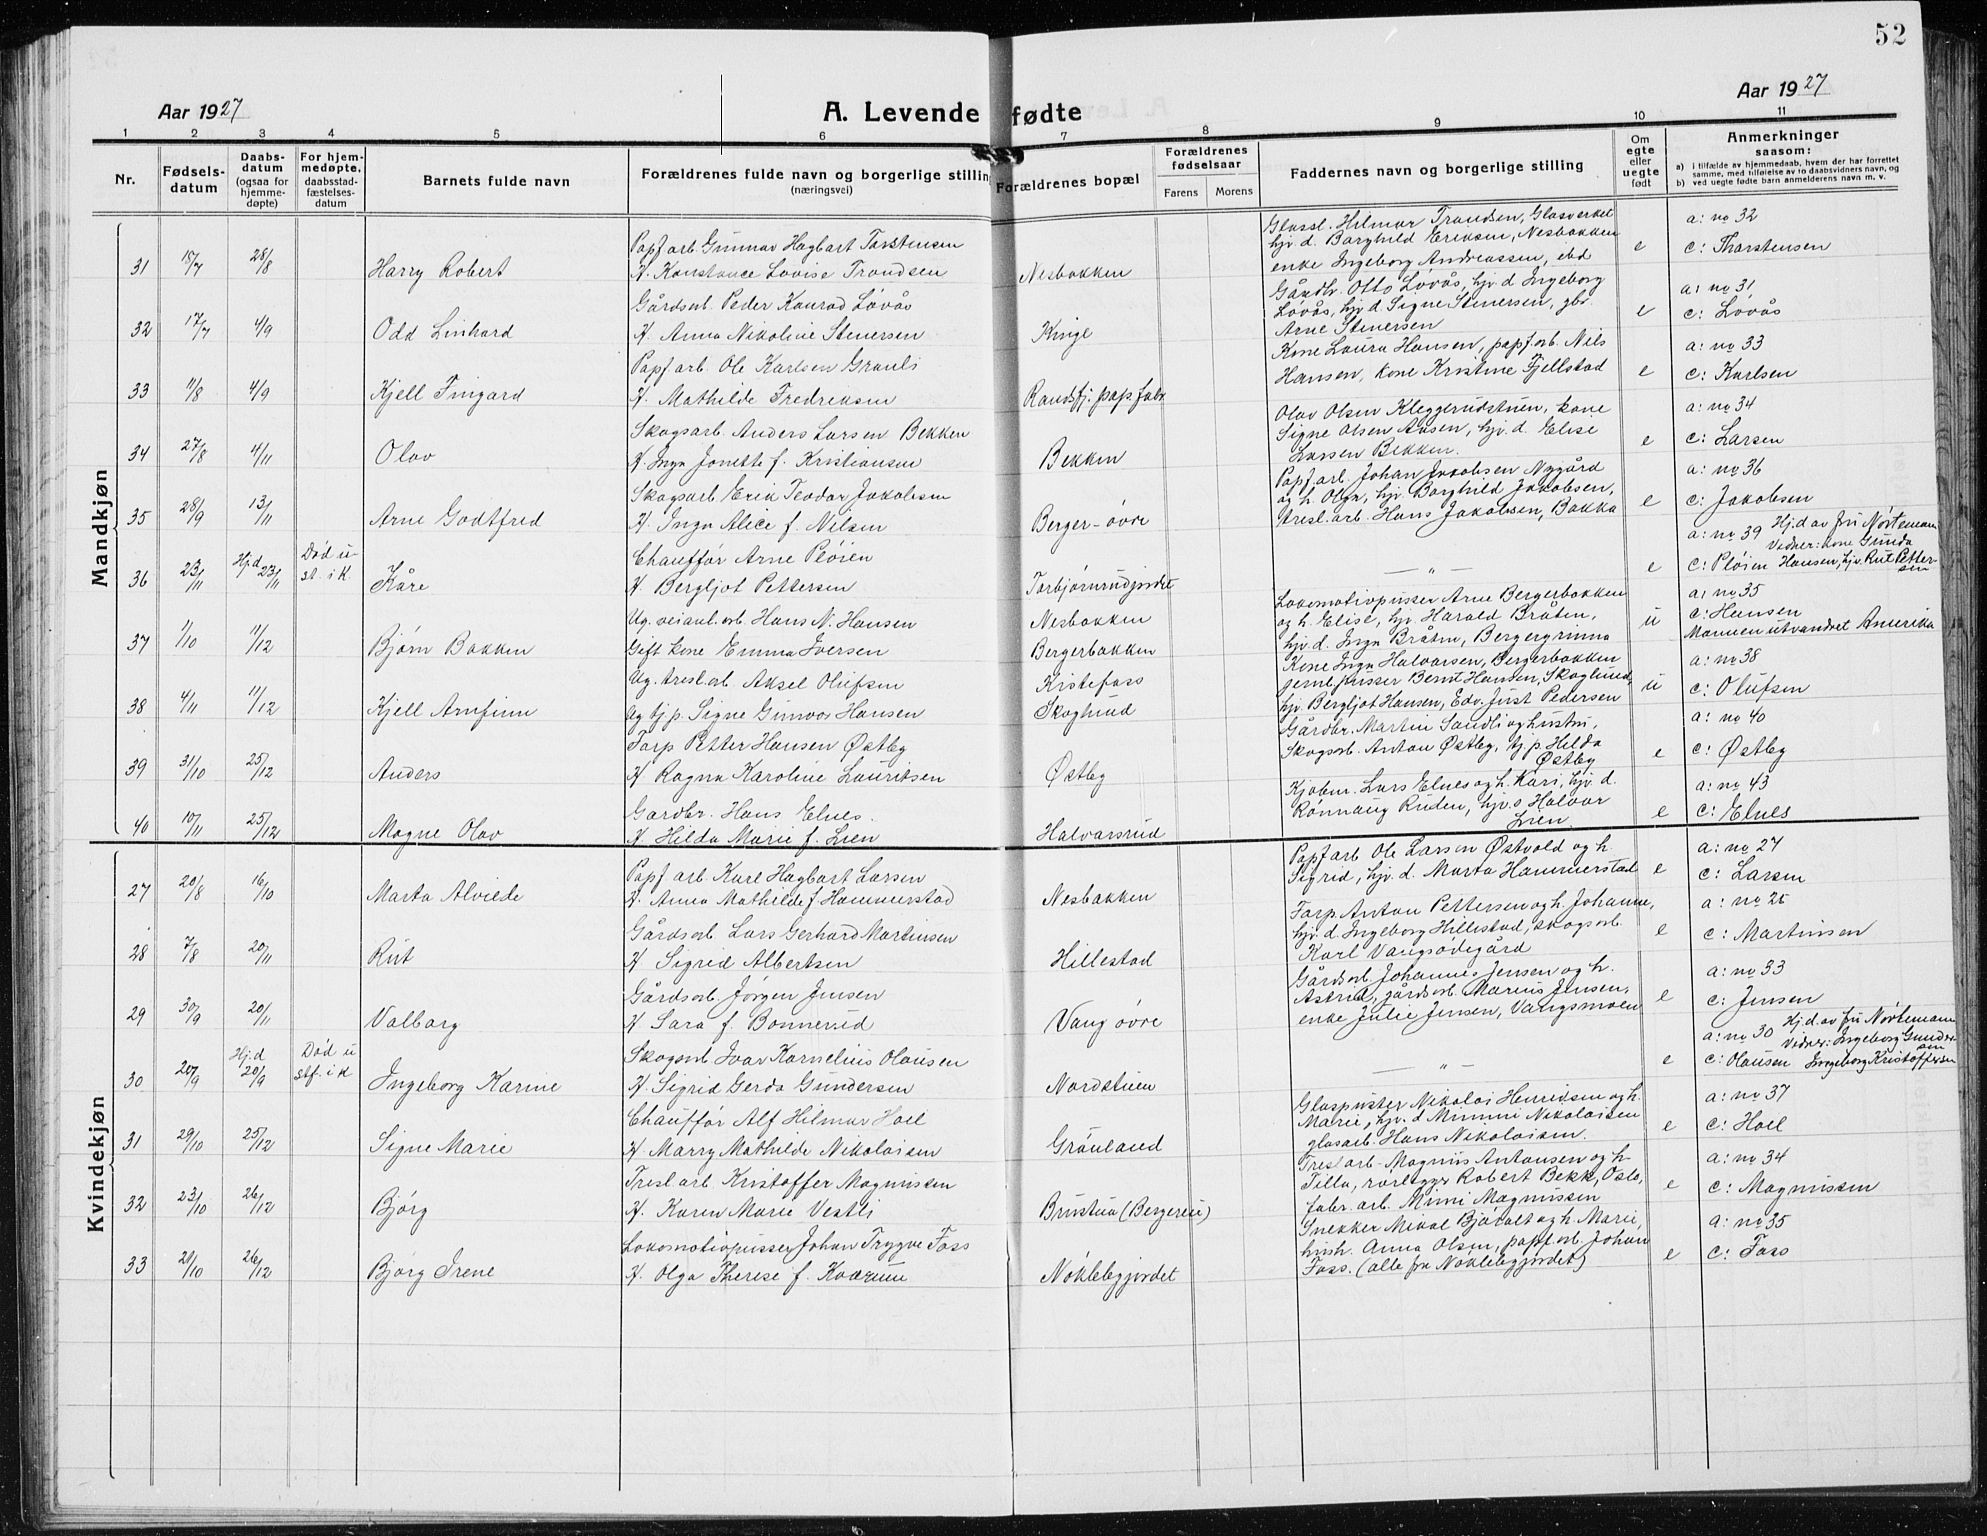 52
Aar 1927
A. Levende fødte
Aar 1927
1 2 3 4 5 6 7 8 9 10 11
Nr.
Fødsels-
datum
Daabs-
datum
(ogsaa for
hjemme-
døpte)
For hjem-
medøpte,
daabsstad-
fæstelses-
datum
Barnets fulde navn
Forældrenes fulde navn og borgerlige stilling
(næringsvei)
Forældrenes bopæl
Forældrenes
fødselsaar
Farens Morens
Faddernes navn og borgerlige stilling
Om
egte
eller
uegte
født
Anmerkninger
saasom:
a) i tilfælde av hjemmedaab, hvem der har forrettet
samme, med tilføielse av to daabsvidners navn, og
b) ved uegte fødte barn anmelderens navn m. v.
Mandkjøn
31 15/7 28/8 Harry Robert
Papf arb. Gunnar Hagbart Torstensen
H. Konstance Lovise Trondsen
Nesbakken
Glassl. Hilmar Trondsen, Glasverket
hjv d. Borghild Eriksen, Nesbakken
enke Ingeborg Andreassen, ibd
e
a: no 32
c: Thorstensen
32 17/7 4/9 Odd Linhard
Gårdsarb Peder Konrad Løvås
H. Anna Nikoline Stenersen
Kinge
Gårdbr. Otto Løvås, hjv d. Ingeborg
Løvås, hjv d. Signe Stenersen, gbr.
Arne Stenersen
e
a: no 31
c: Løvås
33 11/8 4/9 Kjell Fingard
Papf arb. Ole Karlsen Grauli
H. Mathilde Fredriksen
Randsfj: pap. fabr
Kone Laura Hansen, papf. arb. Nils
Hansen, kone Kristine Fjellstad
e
a: no 33
c: Karlsen
34 27/8 4/11 Olav
Skogsarb. Anders Larsen Bekken
H. Inga Jonette f. Kristiansen
Bekken
Olav Olsen Kleggerudstuen, kone
Signe Olsen Aasen, hjv. d. Elise
Larsen Bekken.
e
a: no 34
c: Larsen
35 28/9 13/11 Arne Godtfred
Skogsarb Erik Teodor Jakobsen
H. Inga Alice f. Nilsen
Berger-øvre
Papf arb. Johan Jakobsen Nygård
og h. Olga, hjv. Borghild Jakobsen,
Tresl. arb. Hans Jakobsen, Bakka
e
a: no 36
c: Jakobsen
36 23/11 Hj.d 23/11 Død u
st. i k. Kåre
Chauffør Arne Pløien
H. Bergljot Pettersen
Torbjørnrudjordet
— " —
e
a: no 39 Hj.d av fru Nørtemann
Vidner: kone Gunda
c: Pløien Hansen, hjv. Rut Petter-
sen
37 1/10 11/12 Bjørn Bakken
Ug. veianl. arb. Hans N. Hansen
Gift kone Emma Iversen
Nesbakken
Bergerbakken
Lokomotivpusser Arne Bergerbakken
og h. Elise, hjv. Harald Bråten,
hjv. d. Inga Bråten, Bergergrinna
u
a: no 35
c: Hansen
Mannen utvandret Amerika
38 4/11 11/12 Kjell Arnfinn
Ug. tresl. arb. Aksel Olufsen
Ug hj. p. Signe Gunvor Hansen
Kistefoss
Skoglund
Kone Inga Halvorsen, Bergerbakken
jernepusser Bernt Hansen, Skoglund,
hjv. Bergljot Hansen, Edv. Just Pedersen
u
a: no 38
c: Olufsen
39 31/10 25/12 Anders
Forp Petter Hansen Østby
H Ragna Karoline Lauritsen
Østby
Gårdbr. Martin Sandli og hustru,
Skogsarb. Anton Østby, hj. p. Hilda
Østby
e
a: no 40
c: Østby
40 10/11 25/12 Magne Olav
Gardbr. Hans Elnes.
H Hilda Marie f. Lien
Halvarsrud
Kjøbm. Lars Elnes og h. Kari, hjv. d.
Rønnaug Ruden, hjv. s Halvor
Lien.
e
a: no 43
c: Elnes
Kvindekjøn
27 20/8 16/10 Marta Alviede
Papf arb. Karl Hagbart Larsen
H. Anna Mathilde f. Hammerstad
Nesbakken
Papf arb Ole Larsen Østvold og h.
Sigrid, hjv. d. Marta Hammerstad
e
a: no 27
c: Larsen
28 7/8 20/11 Rut
Gårdsarb Lars Gerhard Martinsen
H Sigrid Albertsen
Hillestad
Forp. Anton Pettersen og h. Johanne,
hjv. d. Ingeborg Hillestad, skogsarb.
Karl Vangsødegård
e
a: no 25
c: Martinsen
29 30/9 20/11 Valborg
Gårdsarb. Jørgen Jensen
H Sara f. Bonnerud
Vang øvre
Gårdsarb Johannes Jensen og h.
Astrid, gårdsarb. Marius Jensen,
enke Julie Jensen, Vangsmoen
e
a: no 33
c: Jensen
30 20/9 Hj.d 20/9 Død u
stf. i k Ingeborg Karine
Skogsarb Ivar Kornelius Olausen
H. Sigrid Gerda Gundersen
Nordstuen
— " —
e
a: no 30 Hj.d. av fru Nørtemann
Vidner: Ingeborg Gunder-
sen
c: Olausen Ingeborg Kristoffersen
31 29/10 25/12 Signe Marie
Chauffør Alf Hilmar Hoel
H. Marry Mathilde Nikolaisen
Grønland
Glaspuster Nikolai Henridsen og h.
Marie, hjv. d Mimmi Nikolaisen
glasarb. Hans Nikolaisen.
e
a: no 37
c: Hoel
32 23/10 26/12 Bjørg
Tresl arb. Kristoffer Magnussen
H. Karen Marie Vestli
Brustua (Bergereie)
Tresl arb. Magnus Antonsen og h.
Tilla, rørlegger Robert Bekk, Oslo,
fabr. arb. Mimi Magnussen
e
a: no 34
c: Magnussen
33 21/10 26/12 Bjørg Irene
Lokomotivpusser Johan Trygve Foss
H. Olga Therese f. Kværune
Nøklebyjordet
Snekker Mikal Bjøralt og h. Marie,
hush. Anna Olsen, papf. arb. Johan
Foss. (alle fra Nøklebyjordet)
e
a: no 35
c: Foss